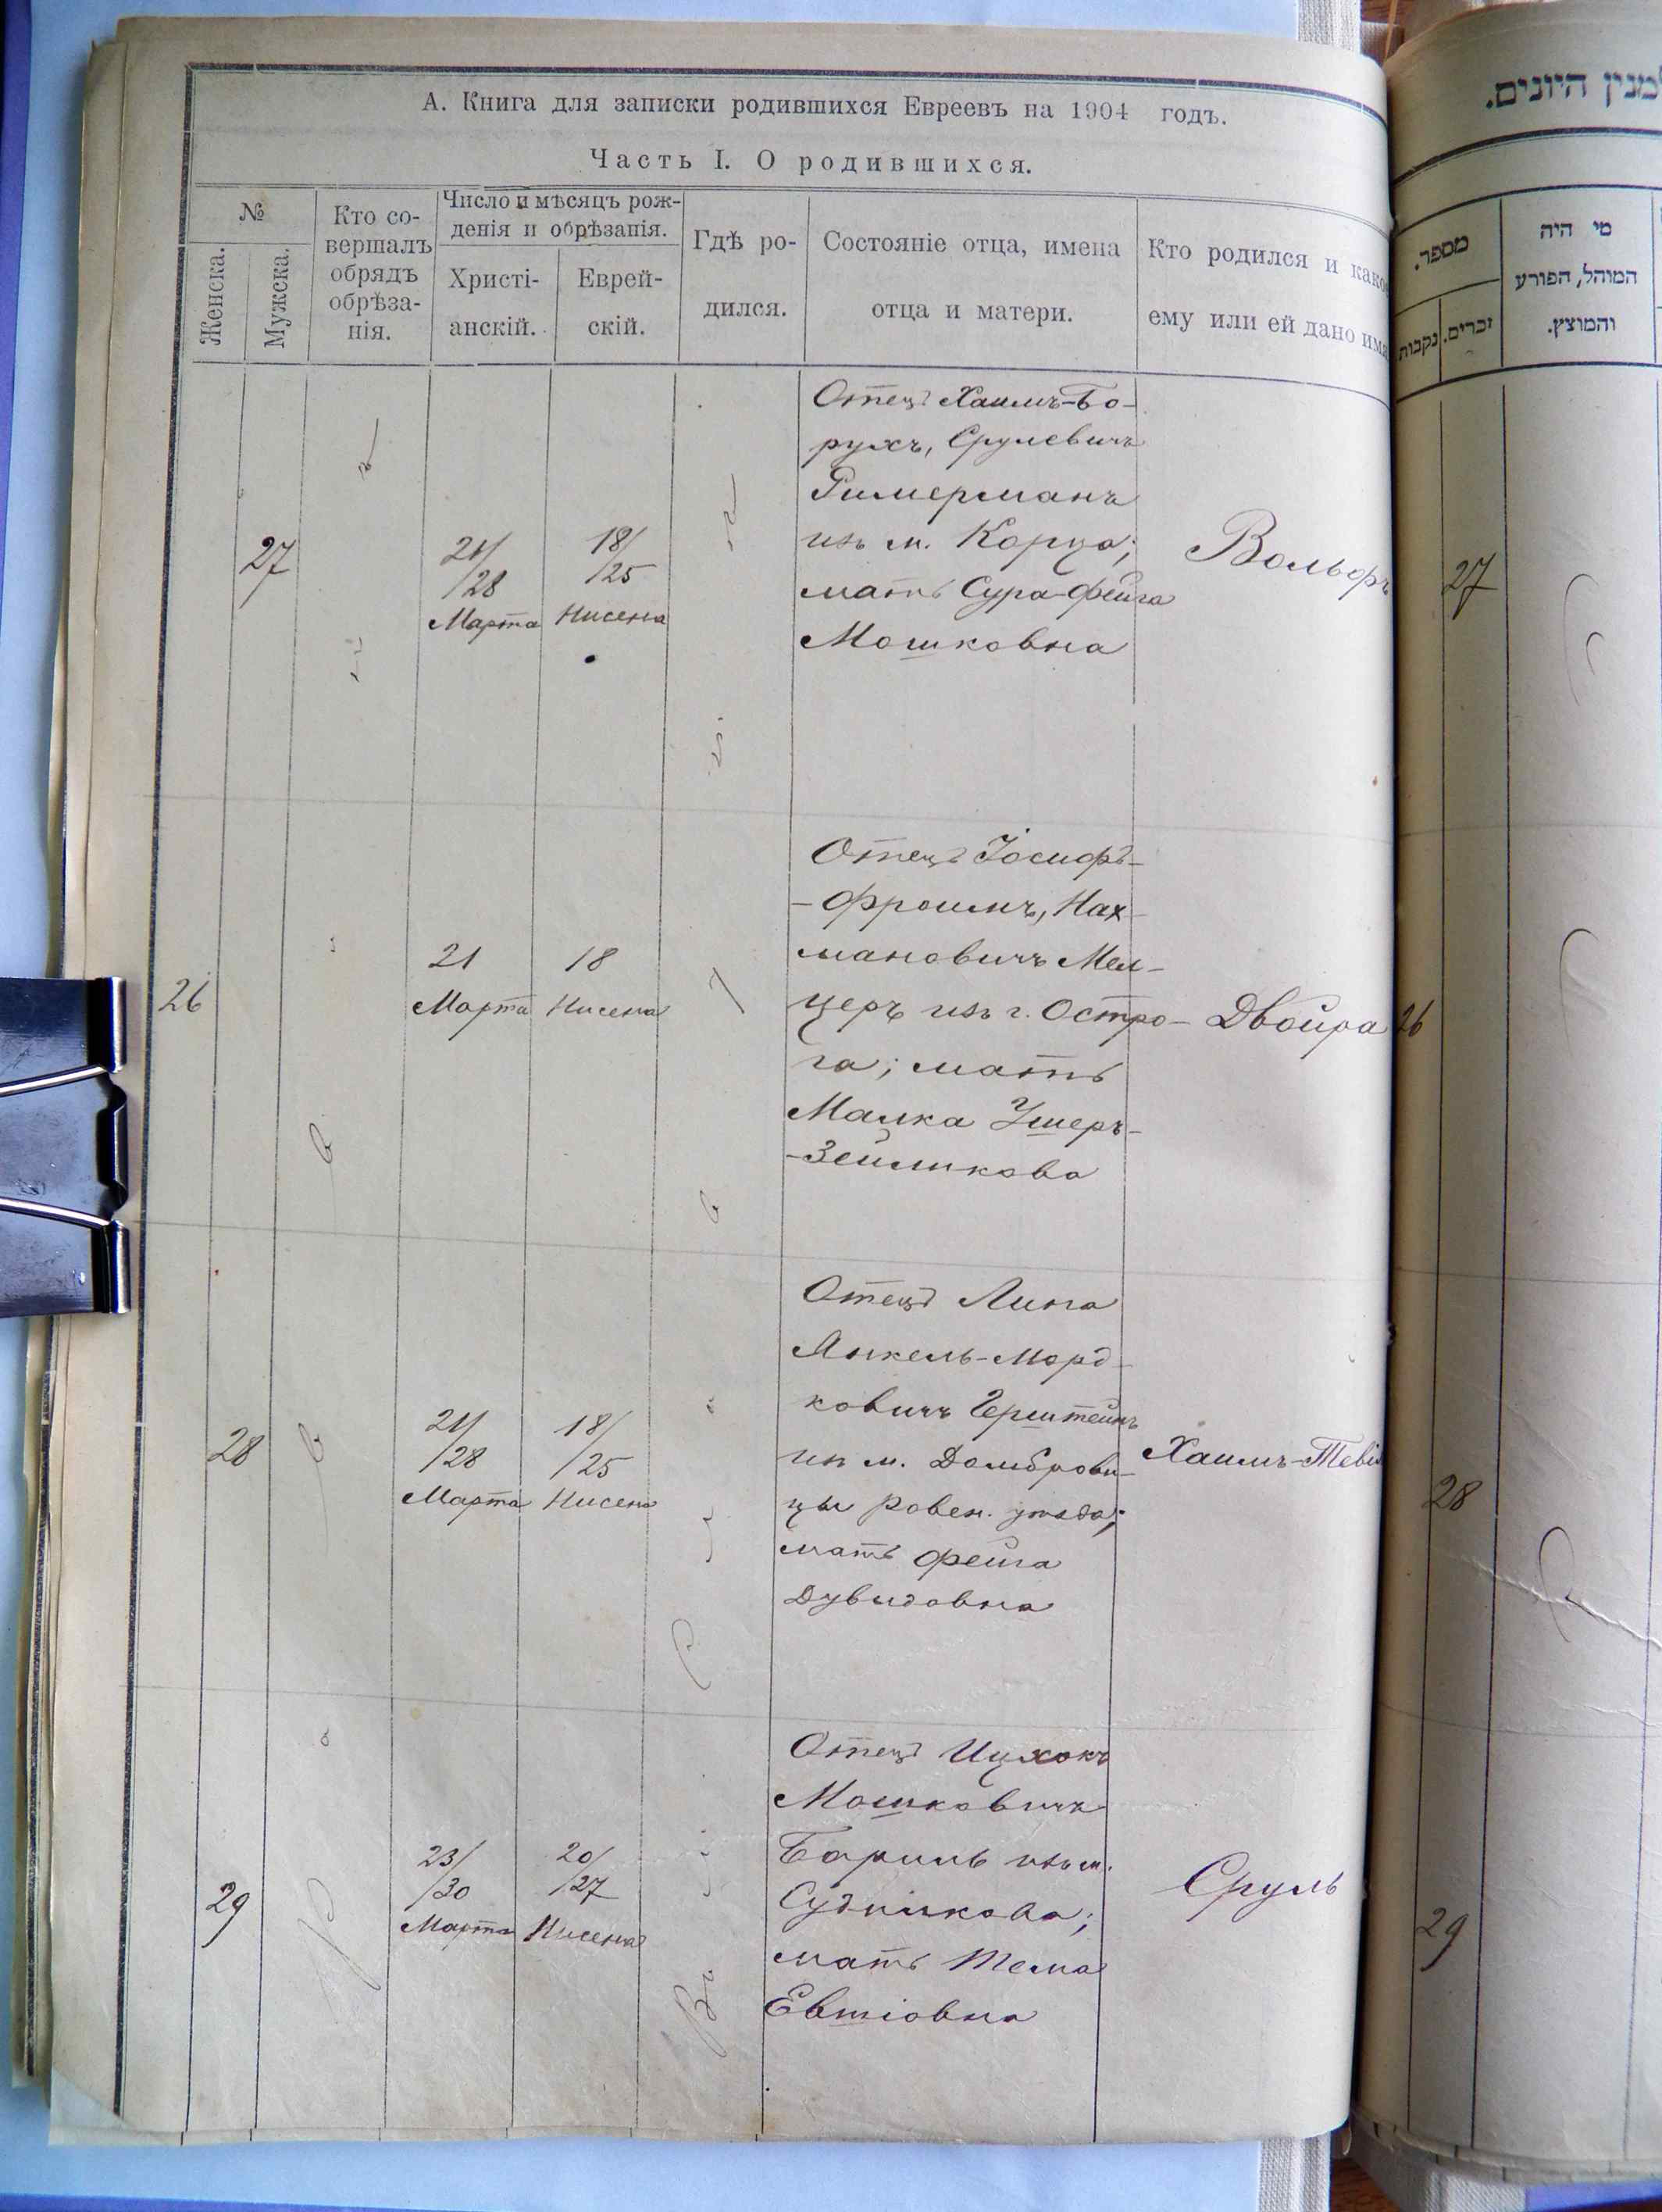 А. Книга для записки родившихся Евреевъ на 1904 годъ.
Часть I. О родившихся.
№
Женска.
Мужска.
Кто со-
вершалъ
обрядъ
обрѣза-
нія.
Число и мѣсяцъ рож-
денія и обрѣзанія.
Христі-
анскій.
Еврей-
скій.
Гдѣ ро-
дился.
Состояніе отца, имена
отца и матери.
Кто родился и како
ему или ей дано имя
27
21/
/28
Марта
18/
/25
Нисена
Отецъ Хаимъ-Бо-
рухъ, Срулевичъ
Римерманъ
изъ м. Корца;
мать Сура-Фейга
Мошковна
Вольфъ
26
21
Марта
18
Нисена
Отецъ Іосифъ-
-Фроимъ, Нах-
мановичъ Мел-
церъ изъ г. Остро-
га; мать
Малка Ушеръ-
-Зейликова
Двойра
28
21/
/28
Марта
18/
/25
Нисена
Отецъ Липа
Янкель-Морд-
ковичъ Герштейнъ
изъ м. Домброви-
цы Ровен. уѣзда;
мать Фейга
Дувидовна
Хаимъ-Тевi
29
23/
/30
Марта
20/
/27
Нисена
Отецъ Ицхокъ
Мошковичъ
Бариль изъ м.
Судилкова;
мать Тема
Евшіовна
Сруль
Въ
למנין היונים.
מספר.
נקבות
זכרים.
מי היה
המוהל, הפורע
והמוצץ.
27
26
28
29